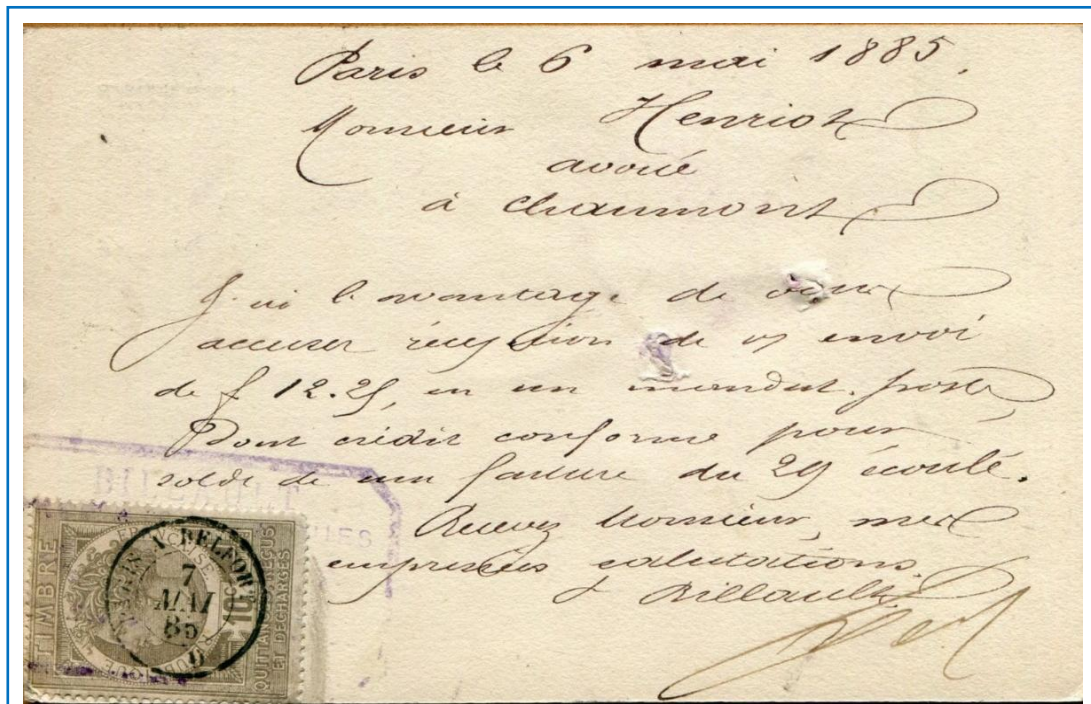 Paris le 6 mai 1885.
Monsieur Henriot
avoué
à Chaumont
J'ai l'avantage de vous
accuser réception de v/ envoi
de f 12.25, en un mandat poste
Dont crédit conforme pour
solde de ma facture du 29 écoulé.
Recevez Monsieur, mes
empressées salutations.
Billault
BILLAULT
TIMBRE
QUITTANCES REÇUS
ET DÉCHARGES
10c
PARIS A BELFORT
7
MAI
85